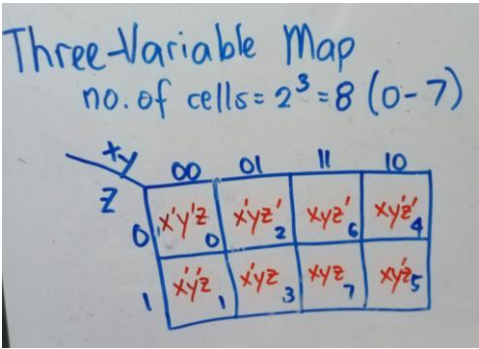 Three-Variable Map
no. of cells = 2³ = 8 (0-7)
xy
00 01 11 10
z
0 x'y'z 0 x'yz' 2 xyz' 6 xy'z' 4
1 x'y'z 1 x'yz 3 xyz 7 xy'z 5